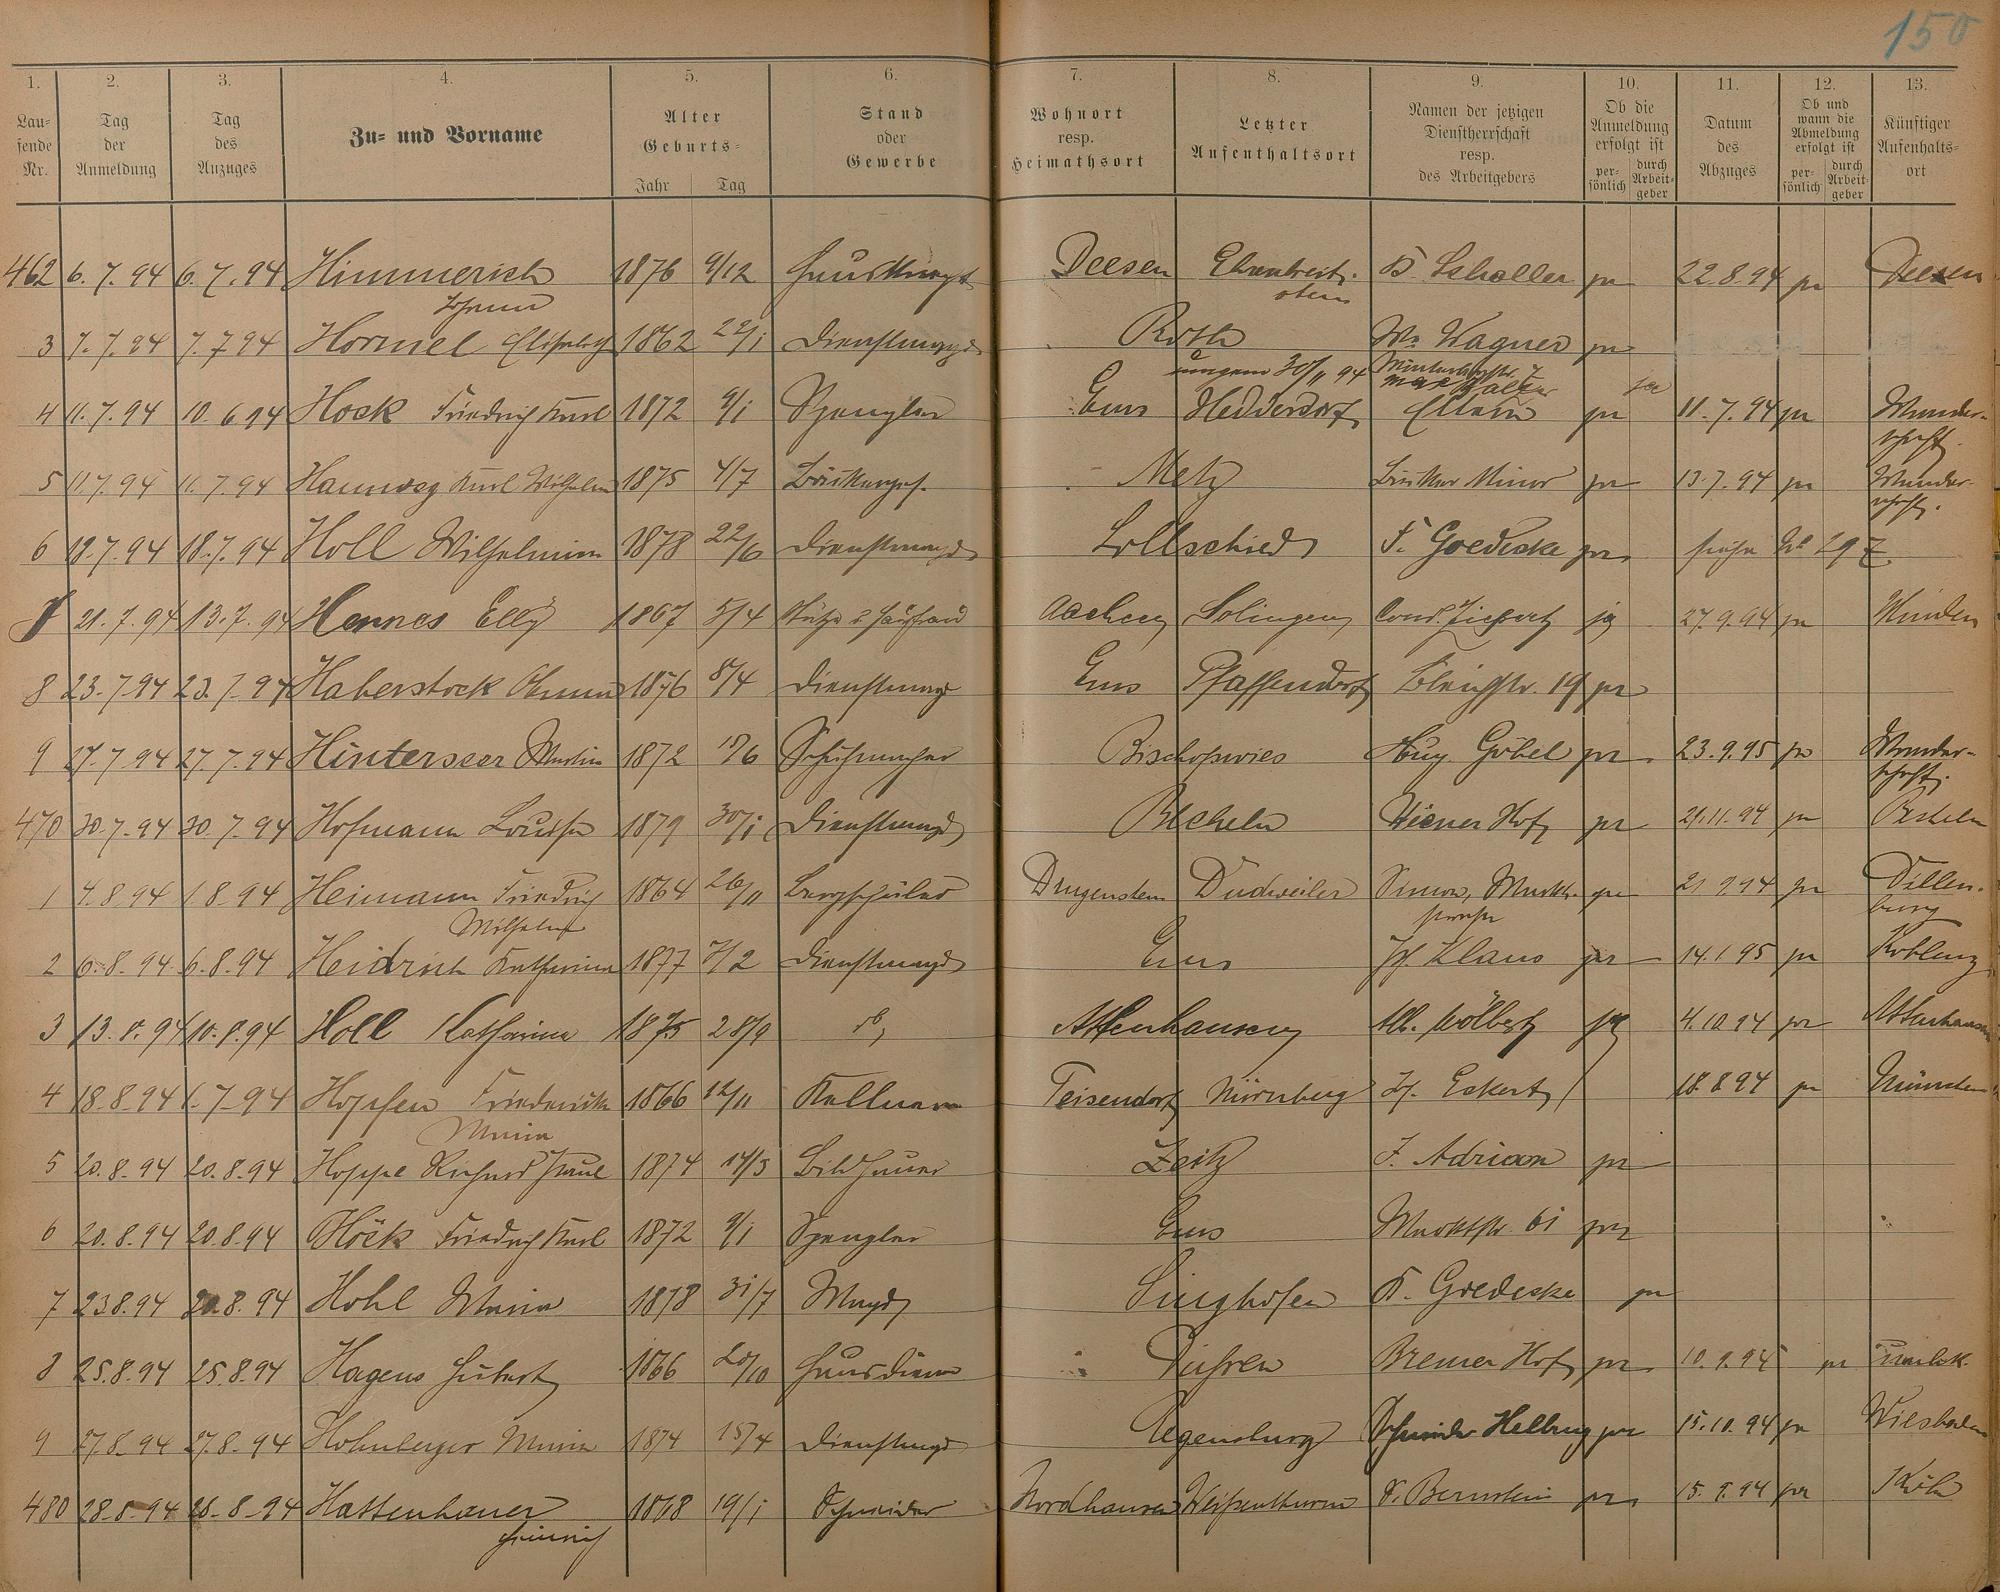 150
1. 2. 3. 4. 5. 6. 7. 8. 9. 10. 11. 12. 13.
Lau-
fende
Nr.
Tag
der
Anmeldung
Tag
des
Anzuges
Zu- und Vorname
Alter
Geburts-
Jahr Tag
Stand
oder
Gewerbe
Wohnort
resp.
Heimathsort
Letzter
Aufenthaltsort
Namen der jetzigen
Dienstherrschaft
resp.
des Arbeitgebers
Ob die
Anmeldung
erfolgt ist
per-
sönlich
durch
Arbeit-
geber
Datum
des
Abzuges
Ob und
wann die
Abmeldung
erfolgt ist
per-
sönlich
durch
Arbeit-
geber
Künftiger
Aufenhalts-
ort
462 6. 7. 94 6. 7. 94 Himmerich 1876 9/12 Deesen Ehrenbreit- Schaller pr 22.8.94 pr Deesen
Johann stein
3 7. 7. 94 7. 7 94 Hormel Elisabeth 1862 22/1 Dienstmagd Roth Wagner pr
30/11 94
4 11. 7. 94 10. 6 94 Hock Friedrich Karl 1872 9/1 Spengler Ems Heddersdorf Eltern pr 11. 7. 94 pr Wander-
schaft.
5 11. 7. 94 11. 7. 94 Karl Wilhelm 1875 4/7 Bäckerges. Metz Bäcker Minor pr 13. 7. 94 pr Wander-
schaft.
6 18. 7. 94 18. 7. 94 Holl Wilhelmine 1878 22/6 Dienstmagd Lollschied F. Goedecke pr siehe 297
7 21. 7. 94 13. 7. 94 Hennes Elly 1867 5/4 Aachen Solingen ja 27. 9. 94 pr Minden
8 23. 7 94 23. 7. 94 Haberstock 1876 8/4 Dienstmagd Ems Pfaffendorf Bleichstr. 19 pr
9 27. 7 94 27. 7. 94 Hinterseer Martin 1872 Schuhmacher Bischofswies Aug. Göbel pr 23. 9. 95 pr Wander-
schaft.
470 30. 7. 94 30. 7. 94 Hofmann Louise 1879 30/1 Dienstmagd Becheln Wiener Hof pr 21. 11. 94 pr Becheln
1 4. 8 94 1. 8. 94 Heimann Friedrich 1864 26/11 Bergschüler Dudweiler Simon, Markt- pr 21 9 94 pr Dillen-
Wilhelm strasse burg
2 6. 8. 94 6. 8. 94 Heidrich Katharina 1877 7/2 Dienstmagd Ems Klaus pr 14. 1 95 pr Koblenz
3 13. 8. 94 10. 8. 94 Holl Katharina 1875 28/9 Attenhausen ja 4. 10. 94 pr Attenhausen
4 18. 8. 94 1. 7. 94 Hopfen Friederike 1866 12/11 Kellnerin Teisendorf Nürnberg Eckert 18. 8 94 pr München
Maria
5 20. 8. 94 20. 8. 94 Hoppe Richard Paul 1874 Bildhauer Zeitz F. Adrian pr
6 20. 8. 94 20. 8. 94 Höck Friedrich Karl 1872 9/1 Spengler Ems Marktstr. 61 pr
7 23 8. 94 20. 8. 94 Hohl Maria 1878 31/7 Magd Singhofen Goedecke pr
8 25. 8. 94 25. 8. 94 Hagens Hubert 1866 20/10 Hausdiener Bremer Hof pr pr
9 27. 8. 94 27. 8. 94 Hohenberger Maria 1874 15/4 Dienstmagd Regensburg Schneider pr 15. 10. 94 pr Wiesbaden
480 28. 8. 94 28. 8. 94 Hattenhauer 1868 19/1 Schneider Nordhausen Weißenthurm Bernstein pr 15. 9. 94 pr Köln
Heinrich